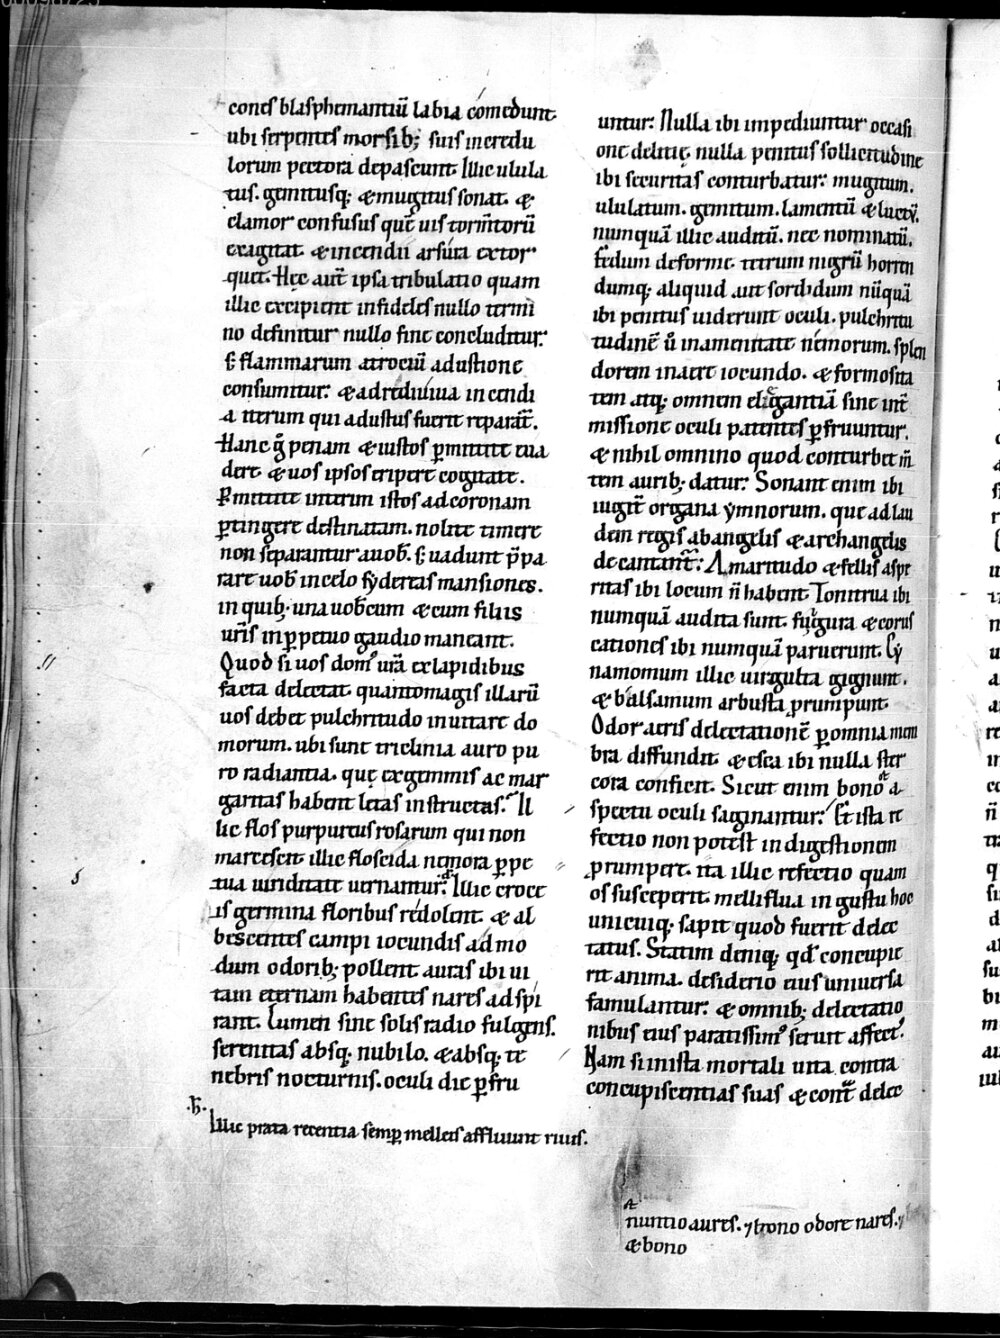 cones blasphemantiū labia comedunt.
ubi serpentes morsib; suis incredu
lorum pectora depascunt. Illic ulula
tus. gemitusq; & mugitus sonat. &
clamor confusus quē uis torm̄torū
exagitat. & incendii arsura extor
quet. Hec aut̄ ipsa tribulatio quam
illic excipient infideles nullo termi
no definitur nullo fine concluditur.
S; flammarum atrociū adustione
consumitur: & ad rediuiua incendi
a iterum qui adustus fuerit reparat̄.
Hanc g̊ penam & iustos ꝑmittite eua
dere. & uos ipsos eripere cogitate.
Pmittite interim istos ad coronam
ꝑtingere destinatam. nolite timere
non separantur a uob̄. S; uadunt p̄pa
rare uob̄ in celo sydereas mansiones.
in quib; una uobcum & cum filiis
ur̄is in ꝑpetuo gaudio maneant.
Quod si uos domꝰ ur̄a ex lapidibus
facta delectat. quantomagis illarū
uos debet pulchritudo inuitare do
morum. ubi sunt triclinia auro pu
ro radiantia. quę ex gemmis ac mar
garitis habent letas instructas. Il
lic flos purpureus rosarum qui non
marcescit. illic floscida nemora ꝑpe
tua uiriditate uernantur. Illic croce
is germina floribus redolent. & al
bescentes campi iocundis ad mo
dum odorib; pollent. auras ibi ui
tam eternam habentes nares adspi
rant. Lumen sine solis radio fulgens.
serenitas absq; nubilo. & absq; te
nebris nocturnis. oculi die ꝑfru
.h̄.
Illic prata recentia semꝑ melleis affluunt riuis.
untur. Nulla ibi impediuntur occasi
one delitię. nulla penitus sollicitudine
ibi securitas conturbatur: mugitum.
ululatum. gemitum. lamentū & luctū.
numquā illic auditū. nec nominatū.
fedum deforme. tetrum nigrū horren
dumq; aliquid aut sordidum nūquā
ibi penitus uiderunt oculi. pulchritu
tudinē ů in amenitate nemorum. splen
dorem in aere iocundo. & formosita
tem atq; omnem elegantiā sine int̄
missione oculi patentes ꝑfruuntur.
& nihil omnino quod conturbet m̄
tem aurib; datur. Sonant enim ibi
iugit̄ organa ymnorum. que ad lau
dem regis ab angelis & archangelis
decantant̄. Amaritudo & fellis aspe
ritas ibi locum n̄ habent. Tonitrua ibi
numquā audita sunt. fulgura & corus
cationes ibi numquā paruerunt. Cy
namomum illic uirgulta gignunt.
& balsamum arbusta prumpunt.
Odor aeris delectationē ꝑ omnia mem
bra diffundit. & esca ibi nulla ster
cora conficit. Sicut enim bono a
spectu oculi saginantur. Et ista re
fectio non potest in digestionem
prumpere. ita illic refectio quam
os susceperit. melliflua in gustu hoc
unicuiq; sapit quod fuerit delec
tatus. Statim deniq; qd̄ concupie
rit anima. desiderio eius uniuersa
famulantur. & omnib; delectatio
nibus eius paratissimꝰ seruit affectꝰ.
Nam si in ista mortali uita contra
concupiscentias suas & cont̄ delec
nuntio aures. ⁊ bono odore nares. ⁊
& bono